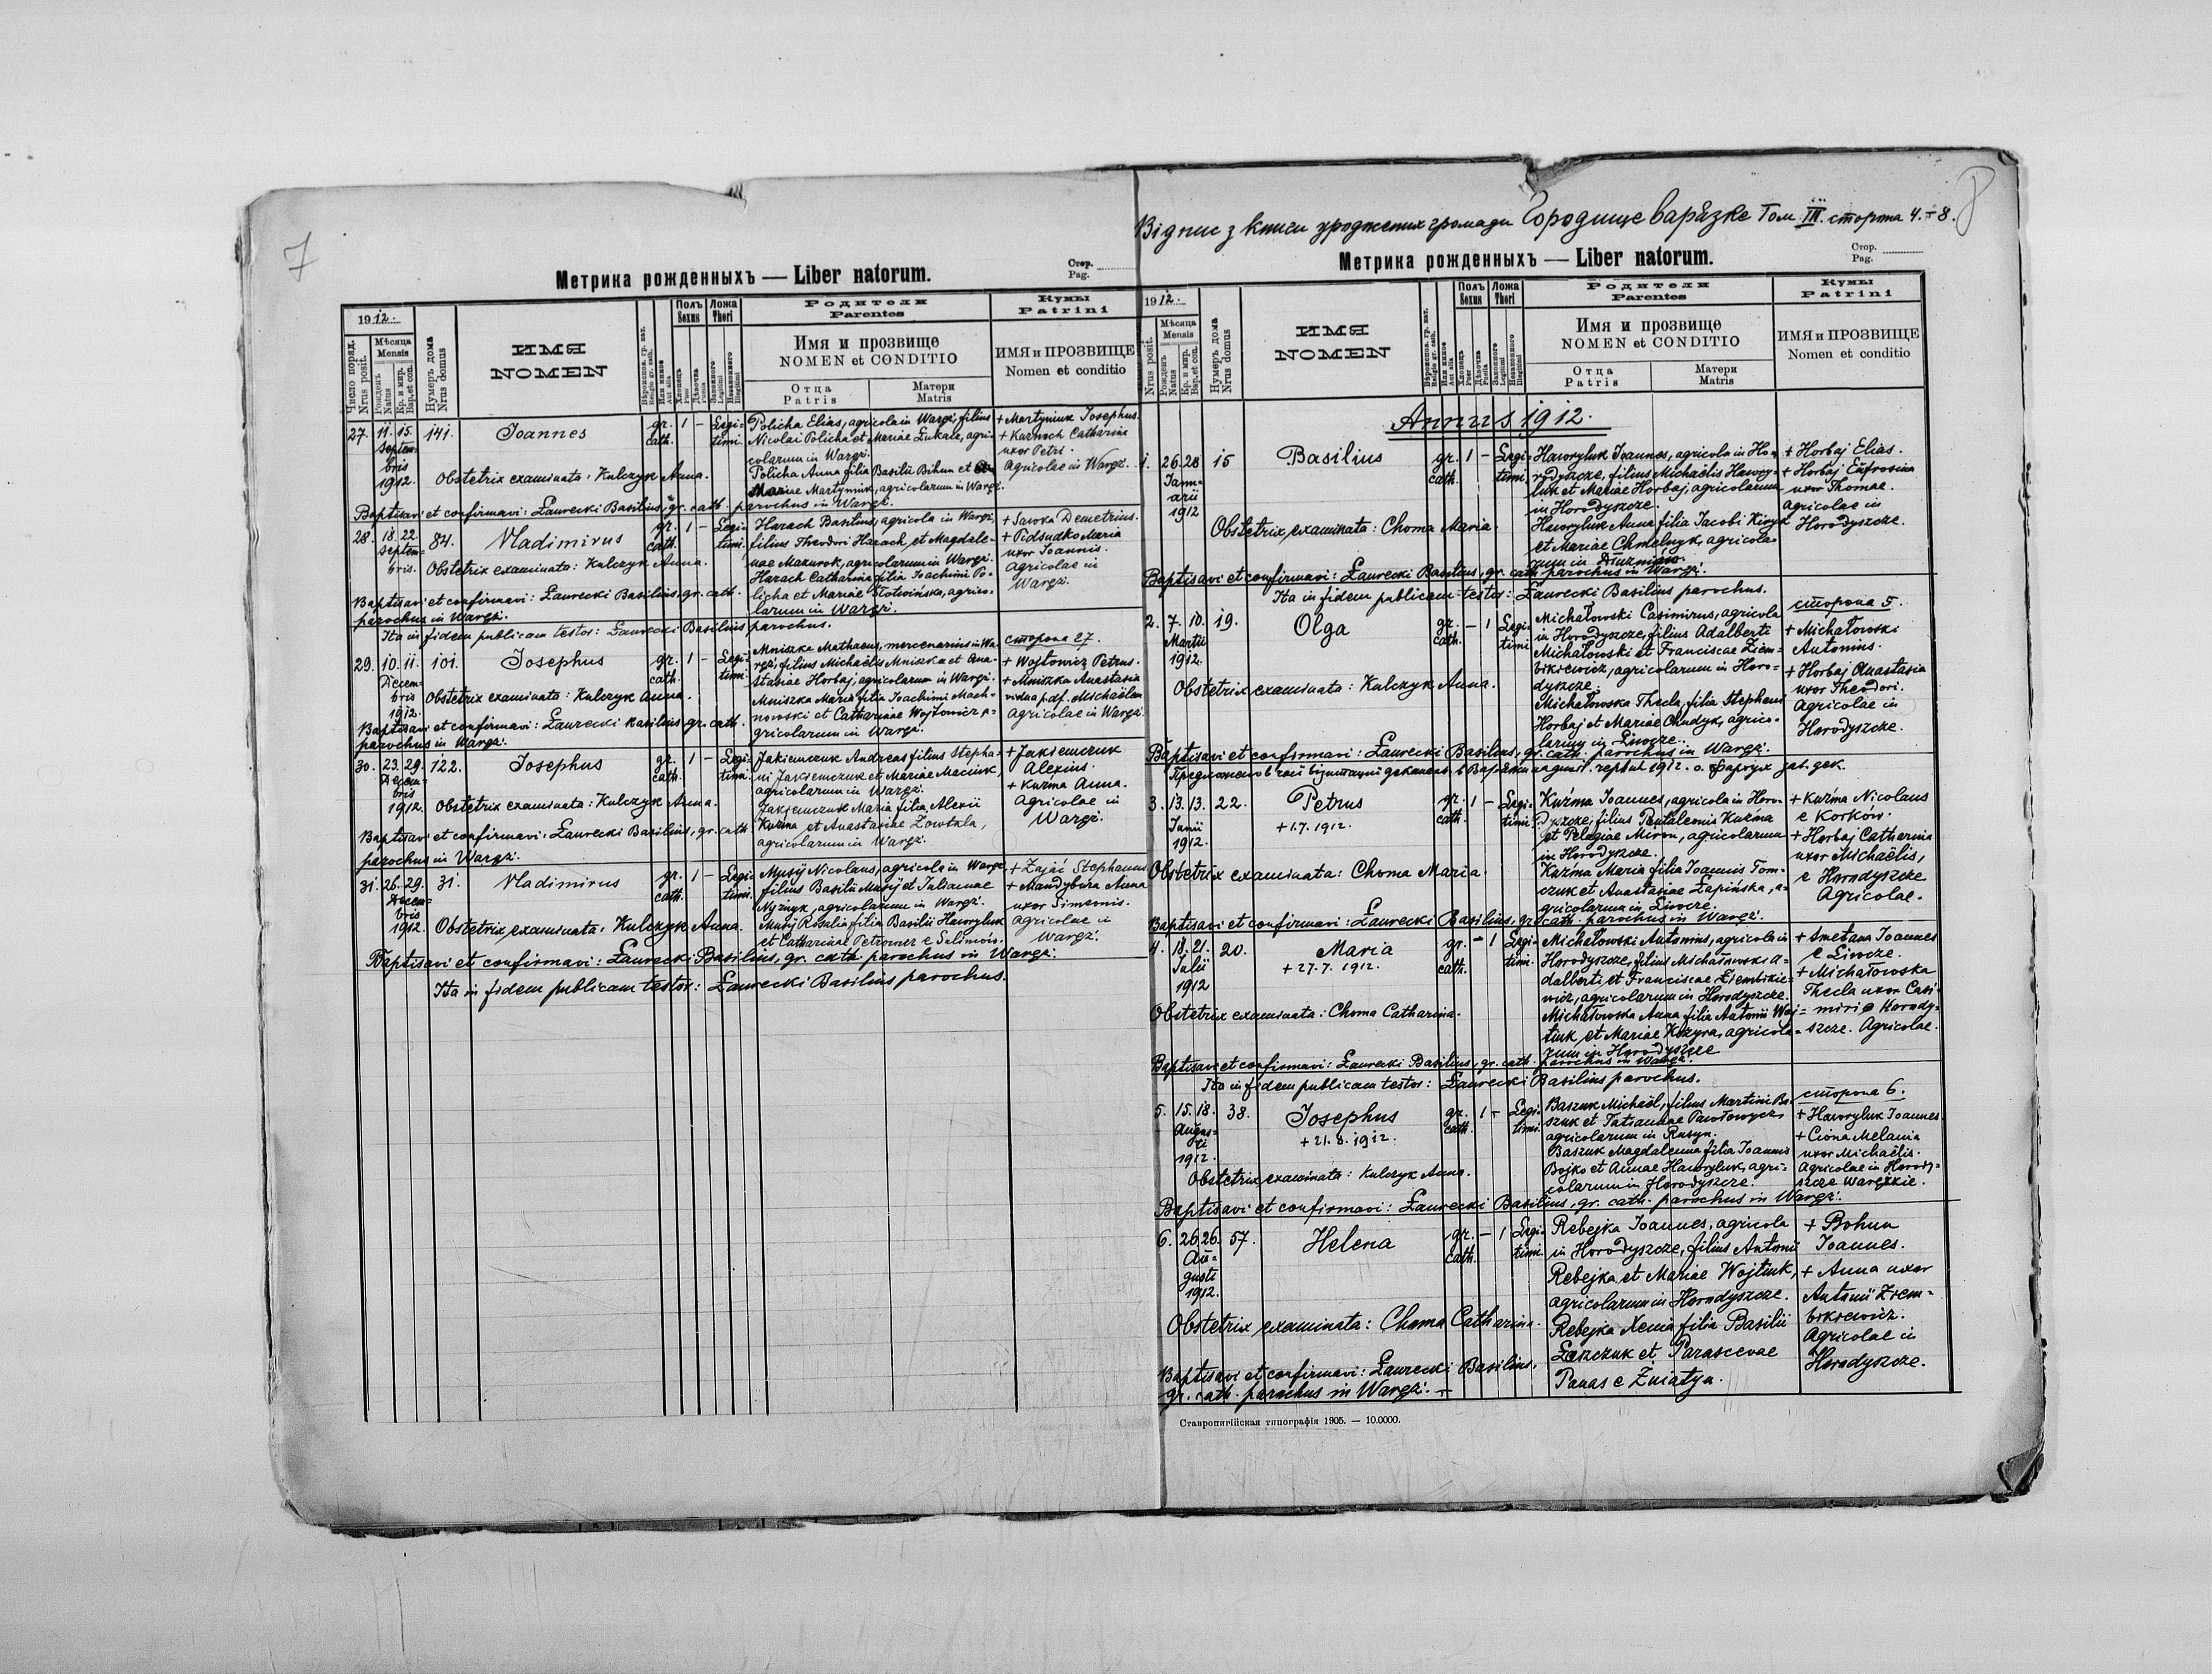 7
Метрика рожденныхъ — Liber natorum.
Стор.
Pag.
1912.
Число поряд.
Nrus posit.
Мѣсяца
Mensis
Рожденъ
Natus
Кр. и мир.
Bap. et con.
Нумеръ дома
Nrus domus
ИМЯ
NOMEN
Вѣроиспов. гр. кат.
Religio gr. cath.
Или инное
Aut alia
Полъ
Sexus
Хлопець
Puer
Дѣвочка
Puella
Ложа
Thori
Законного
Legitimi
Незаконного
Illegitimi
Родители
Parentes
Имя и прозвище
NOMEN et CONDITIO
Отца
Patris
Матери
Matris
Кумы
Patrini
ИМЯ и ПРОЗВИЩЕ
Nomen et conditio
27. 11. 15. Septembris 1912. 141. Joannes gr. cath. 1 – Legitimi.
Policha Elias, agricola in Waręż, filius
Nicolai Policha et Mariae Łukace, agri-
colarum in Waręż.
Policha Anna filia Basilii Bihun et
Mariae Martyniuk, agricolarum in Waręż.
+ Martyniuk Josephus.
+ Karnoch Catharina
uxor Petri.
Agricolae in Waręż.
Obstetrix examinata: Kulczyk Anna.
Baptisavi et confirmavi: Ławrecki Basilius, gr. cath. parochus in Waręż.
28. 18. 22. Septembris. 84. Vladimirus gr. cath. 1 – Legitimi.
Harach Basilius, agricola in Waręż,
filius Theodori Harach, et Magdale-
nae Mazurok, agricolarum in Waręż.
Harach Catharina filia Joachimi Po-
licha et Mariae Słotwińska, agrico-
larum in Waręż.
+ Saroka Demetrius.
+ Pidsudko Maria
uxor Joannis.
Agricolae in
Waręż.
Obstetrix examinata: Kulczyk Anna.
Baptisavi et confirmavi: Ławrecki Basilius, gr. cath.
parochus in Waręż.
Ita in fidem publicam testor: Ławrecki Basilius parochus.
сторона 27.
29. 10. 11. Decembris 1912. 101. Josephus gr. cath. 1 – Legitimi.
Mniszka Mathaeus, mercenarius in Wa-
ręż, filius Michaëlis Mniszka et Ana-
stasiae Horbaj, agricolarum in Waręż.
Mniszka Maria filia Joachimi Mach-
nowski et Catharinae Wojtowicz a-
gricolarum in Waręż.
+ Wojtowicz Petrus.
+ Mniszka Anastasia
vidua pdf. Michaëlem
Agricolae in Waręż.
Obstetrix examinata: Kulczyk Anna.
Baptisavi et confirmavi: Ławrecki Basilius, gr. cath.
parochus in Waręż.
30. 23. 29. Decembris 1912. 122. Josephus gr. cath. 1 – Legitimi.
Jakiemczuk Andreas filius Stepha-
ni Jakiemczuk et Mariae Maciuk,
agricolarum in Waręż.
Jakiemczuk Maria filia Alexii
Kuźma et Anastasiae Zowtkla,
agricolarum in Waręż.
+ Jakiemczuk
Alexius.
+ Kuźma Anna.
Agricolae in
Waręż.
Obstetrix examinata: Kulczyk Anna.
Baptisavi et confirmavi: Ławrecki Basilius, gr. cath.
parochus in Waręż.
31. 26. 29. Decembris 1912. 31. Vladimirus gr. cath. 1 – Legitimi.
Musij Nicolaus, agricola in Waręż,
filius Basilii Musij et Julianae
Nyżnyk, agricolarum in Waręż.
Musij Rosalia filia Basilii Hawryluk
et Catharinae Petrower e Sulimów.
+ Zajać Stephanus
+ Mandybura Anna
uxor Simeonis.
Agricolae in
Waręż.
Obstetrix examinata: Kulczyk Anna.
Baptisavi et confirmavi: Ławrecki Basilius, gr. cath. parochus in Waręż.
Ita in fidem publicam testor: Ławrecki Basilius parochus.
8
Відпис з книги уроджених громади Городище варяжске Том III. сторона 4.–8.
Метрика рожденныхъ — Liber natorum.
Стор.
Pag.
1912.
Nrus posit.
Мѣсяца
Mensis
Рожденъ
Natus
Кр. и мир.
Bap. et con.
Нумеръ дома
Nrus domus
ИМЯ
NOMEN
Вѣроиспов. гр. кат.
Religio gr. cath.
Или инное
Aut alia
Полъ
Sexus
Хлопець
Puer
Дѣвочка
Puella
Ложа
Thori
Законного
Legitimi
Незаконного
Illegitimi
Родители
Parentes
Имя и прозвище
NOMEN et CONDITIO
Отца
Patris
Матери
Matris
Кумы
Patrini
ИМЯ и ПРОЗВИЩЕ
Nomen et conditio
Annus 1912.
1. 26. 28 Januarii 1912 15 Basilius gr. cath. 1 – Legitimi
Hawryluk Joannes, agricola in Ho-
rodyszcze, filius Michaëlis Hawry-
luk et Mariae Horbaj, agricolarum
in Horodyszcze.
Hawryluk Anna filia Jacobi Kiryk
et Mariae Chmelnyk, agricola-
rum in
+ Horbaj Elias.
+ Horbaj Eufrosina
uxor Thomae.
Agricolae in
Horodyszcze.
Obstetrix examinata: Choma Maria.
Baptisavi et confirmavi: Ławrecki Basilius, gr. cath. parochus in Waręż.
Ita in fidem publicam testor: Ławrecki Basilius parochus.
сторона 5.
2. 7. 10. Martii 1912. 19. Olga gr. cath. – 1 Legitimi
Michałowski Casimirus, agricola
in Horodyszcze, filius Adalberti
Michałowski et Franciscae Ziem-
bikiewicz, agricolarum in Horo-
dyszcze.
Michałowska Thecla, filia Stephani
Horbaj et Mariae Chudyk, agrico-
larum in Liwcze.
+ Michałowski
Antonius.
+ Horbaj Anastasia
uxor Theodori.
Agricolae in
Horodyszcze.
Obstetrix examinata: Kulczyk Anna.
Baptisavi et confirmavi: Ławrecki Basilius, gr. cath. parochus in Waręż.
3. 13. 13. Junii 1912. 22. Petrus gr. cath. 1 – Legitimi
+ 1.7. 1912.
Kuźma Joannes, agricola in Horo-
dyszcze, filius Pantaleonis Kuźma
et Pelagiae Miron, agricolarum
in Horodyszcze.
Kuźma Maria filia Joannis Tom-
czuk et Anastasiae Łapińska, a-
gricolarum in Liwcze.
+ Kuźma Nicolaus
e Korków.
+ Horbaj Catharina
uxor Michaëlis,
e Horodyszcze
Agricolae.
Obstetrix examinata: Choma Maria.
Baptisavi et confirmavi: Ławrecki Basilius, gr. cath. parochus in Waręż.
4. 18. 21. Julii 1912 20. Maria gr. cath. – 1 Legitimi.
+ 27.7. 1912.
Michałowski Antonius, agricola in
Horodyszcze, filius Michałowski A-
dalberti et Franciscae Ziembikie-
wicz, agricolarum in Horodyszcze.
Michałowska Anna filia Antonii Woj-
tiuk et Mariae Kozyra, agricola-
rum in Horodyszcze
+ Smetana Joannes
e Liwcze.
+ Michałowska
Thecla uxor Casi-
miri e Horody-
szcze. Agricolae.
Obstetrix examinata: Choma Catharina.
Baptisavi et confirmavi: Ławrecki Basilius, gr. cath. parochus in Waręż.
Ita in fidem publicam testor: Ławrecki Basilius parochus.
сторона 6.
5. 15. 18. Augusti 1912. 38. Josephus gr. cath. 1 – Legitimi.
+ 21.8. 1912.
Baszuk Michaël, filius Martini Ba-
szuk et Tatianae Pawłowycz,
agricolarum in Rusyn.
Baszuk Magdalenna filia Joannis
Bojko et Annae Hawryluk, agri-
colarum in Horodyszcze.
+ Hawryluk Joannes.
+ Ciona Melania
uxor Michaëlis.
Agricolae in Horody-
szcze Waręzkie.
Obstetrix examinata: Kulczyk Anna.
Baptisavi et confirmavi: Ławrecki Basilius, gr. cath. parochus in Waręż.
6. 26. 26. Augusti 1912. 57. Helena gr. cath. – 1 Legitimi.
Rebejka Joannes, agricola
in Horodyszcze, filius Antonii
Rebejka et Mariae Wojtiuk,
agricolarum in Horodyszcze.
Rebejka Xenia filia Basilii
Łeszczuk et Parascevae
Panas e Żniatyn.
+ Bohun
Joannes.
+ Anna uxor
Antonii Ziem-
bikiewicz.
Agricolae in
Horodyszcze.
Obstetrix examinata: Choma Catharina.
Baptisavi et confirmavi: Ławrecki Basilius,
gr. cath. parochus in Waręż.
Ставропигійская типографія 1905. — 10.0000.